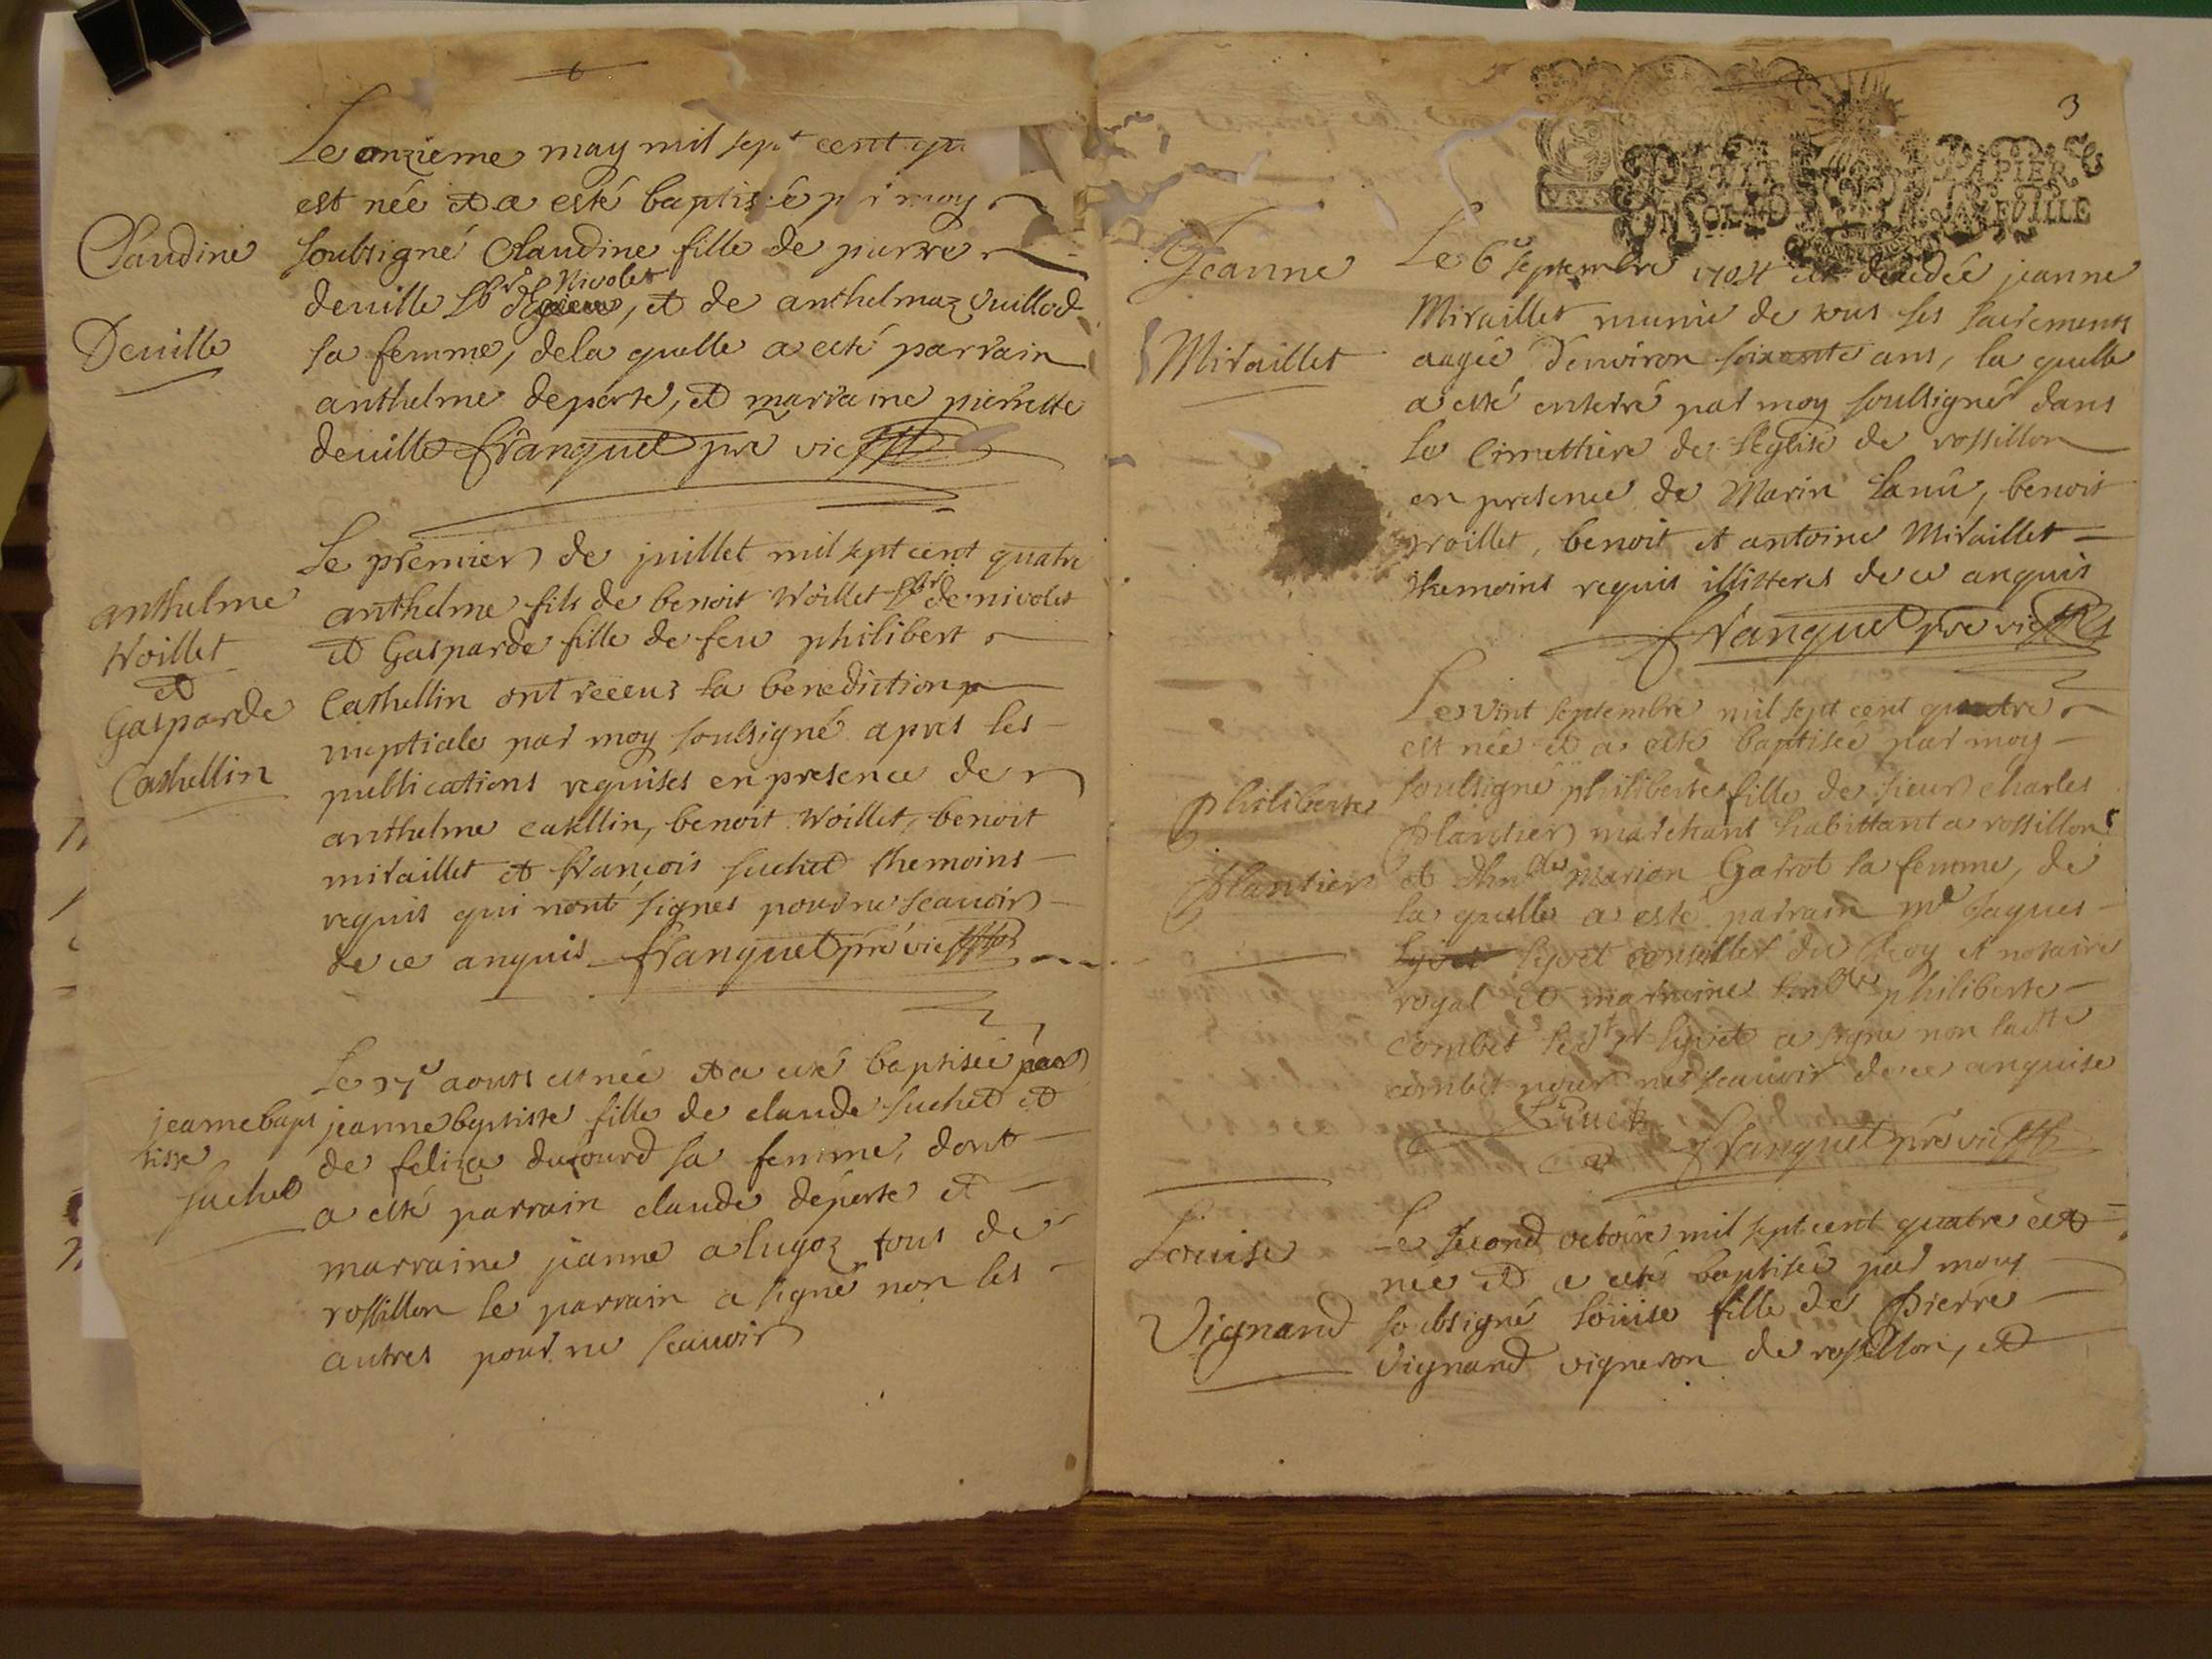 Le onzieme may mil sept cent
est née et a esté baptisée par moy
Claudine
soubsigné Claudine fille de pierre
deuille Lbr de Nivolet, et de anthelmaz Vuillod
Deuille
sa femme, de la quelle a esté parrain
anthelme deporte, et marraine pierrette
deuille franquet pre vic
Le premier de juillet mil sept cent quatre
anthelme
anthelme fils de benoit Woillet Lbr de nivolet
Woillet
et Gasparde fille de feu philibert
et
Gasparde
Casthellin ont receus la benediction
nuptiale par moy soulsigné apres les
Casthellin
publications requises en presence de
anthelme catellin, benoit Woillet, benoit
miraillet et françois suchet themoins
requis qui nont signes pour ne scauoir
de ce anquis franquet pre vic
Le 17e aoust est née et a esté baptisée par
jeannebaptisste
jeannebaptiste fille de claude suchet et
de feliza dufourd sa femme, dont
suchet
a esté parrain claude déporte et
marraine jeanne alugoz tous de
rossillon le parrain a signé non les
autres pour ne scauoir
3
PETIT PAPIER
Jeanne
Le 6e septembre 1704 est decedée jeanne
Miraillet munie de tous ses sacrements
Miraillet
aagée d'environ soixante ans, la quelle
a esté enterré par moy soulsigné dans
le cimettiere de l'eglise de rossillon
en presence de Marin Lanü, benoit
woillet, benoit et antoine Miraillet
themoins requis illitteres de ce anquis
franquet pre vic
Le vint septembre mil sept cent quatre
est née et a esté baptisée par moy
Philiberte
soulsigné philiberte fille de sieur charles
plantier marchant habittant a rossillon
Plantier
et Marion Garrot sa femme, de
la quelle a esté parrain me Jaques
Lyvet conseiller du Roy et notaire
royal et marraine philiberte
combet Lyvet a signé non laditte
combet pour ne scauoir de ce anquise
franquet pre vic
Louise
Le second octobre mil sept cent quatre est
née et a esté baptisée par moy
Vignand
soubsigné Loüise fille de Pierre
Vignand vigneron de rossillon, et